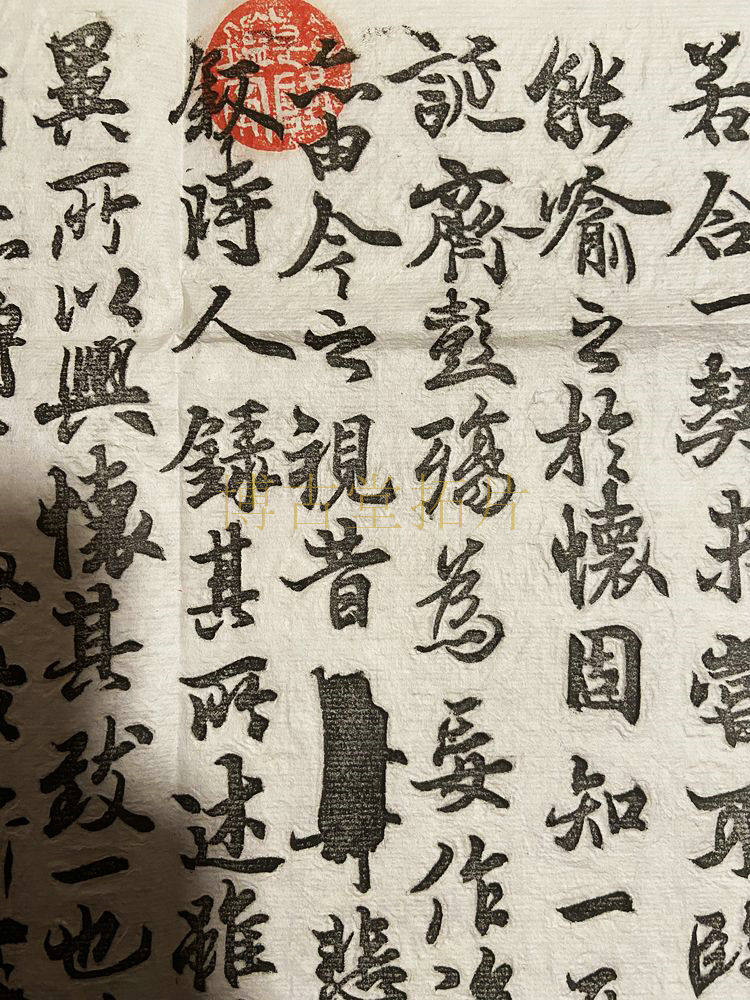 若合一契未嘗不臨
能喻之於懷固知一
誕齊彭殤為妄作後
亦由今之視昔悲
叙時人錄其所述雖
異所以興懷其致一也
博古堂拓片